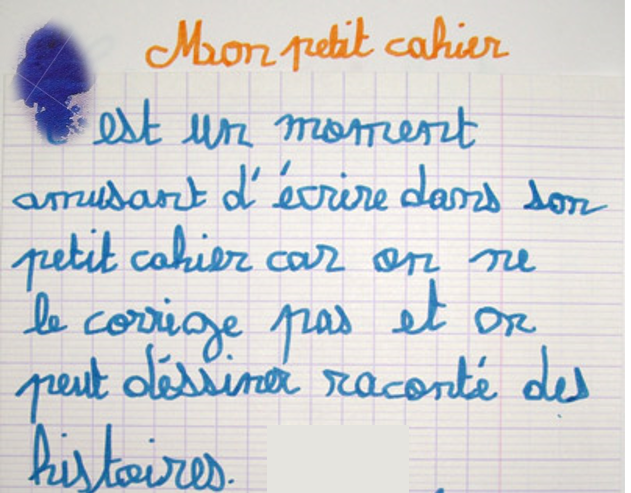 Mon petit cahier
est un moment
amusant d'écrire dans son
petit cahier car on ne
le corrige pas et on
peut déssiner raconté des
histoires.